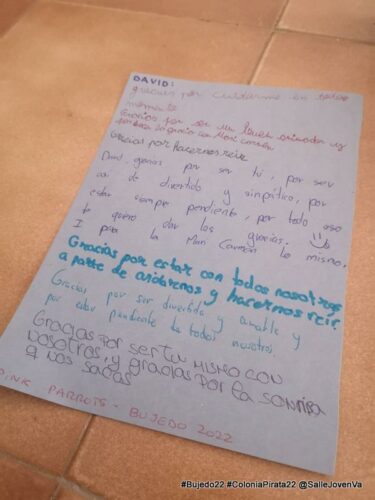 DAVID:
gracias por cuidarme en todo
momento
Gracias por ser un buen animador y
gracias con Mari Carmen
Gracias por hacernos reir
David, gracias por ser tú, por ser
tan divertido y simpático, por
estar siempre pendiente, por todo eso
te quiero dar las gracias.
I para la Mari Carmen lo mismo.
Gracias por estar con todos nosotros
a parte de cuidarnos y hacernos reir.
Gracias por ser divertido y amable y
por estar pendiente de todos nosotros.
Gracias por ser tu mismo con
nosotros, y gracias por la sonrisa
q nos sacas
PINK PARROTS - BUJEDO 2022
#Bujedo22 #ColoniaPirata22 @SalleJovenVa